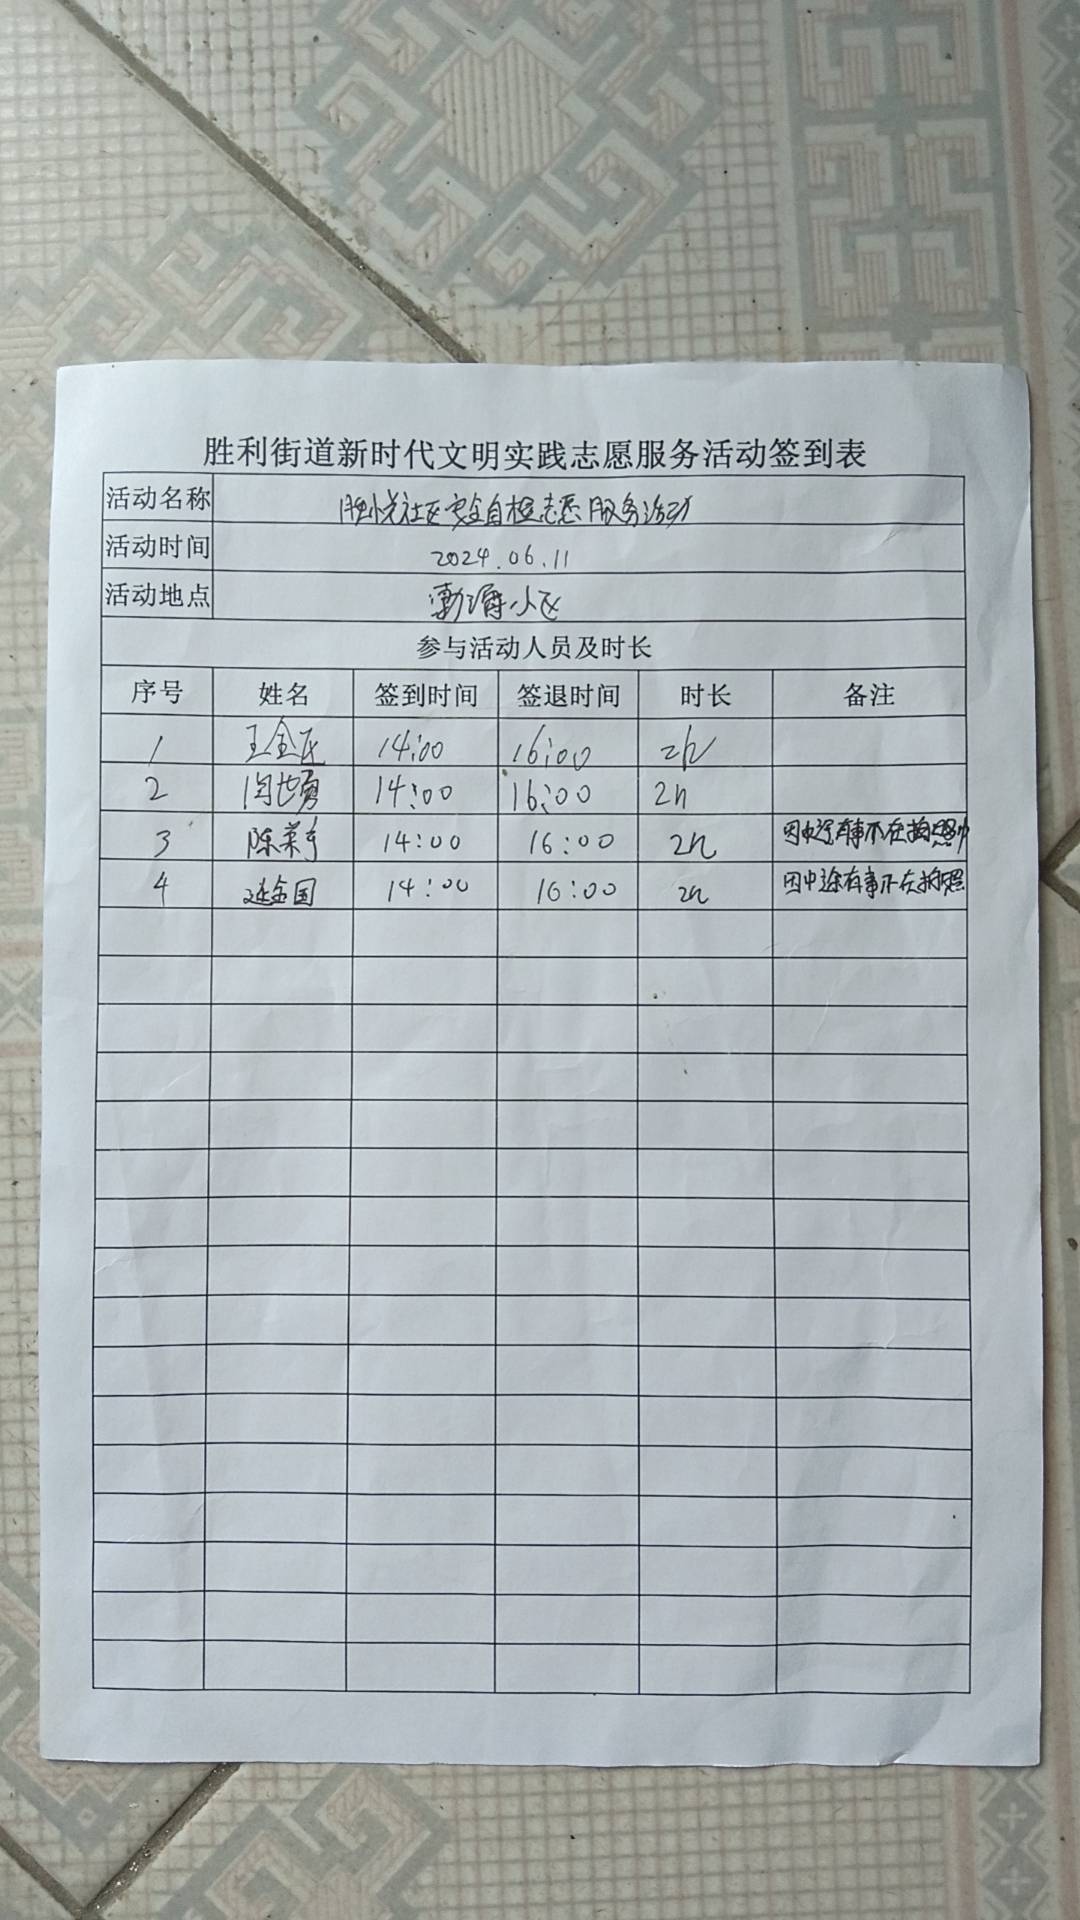 胜利街道新时代文明实践志愿服务活动签到表
活动名称 胜悦社区安全自检志愿服务活动
活动时间 2024.06.11
活动地点 渤海小区
参与活动人员及时长
序号 姓名 签到时间 签退时间 时长 备注
1 王金 14:00 16:00 2h
2 闫世勇 14:00 16:00 2h
3 陈 14:00 16:00 2h 因中途有事不在拍照中
4 金国 14:00 16:00 2h 因中途有事不在拍照